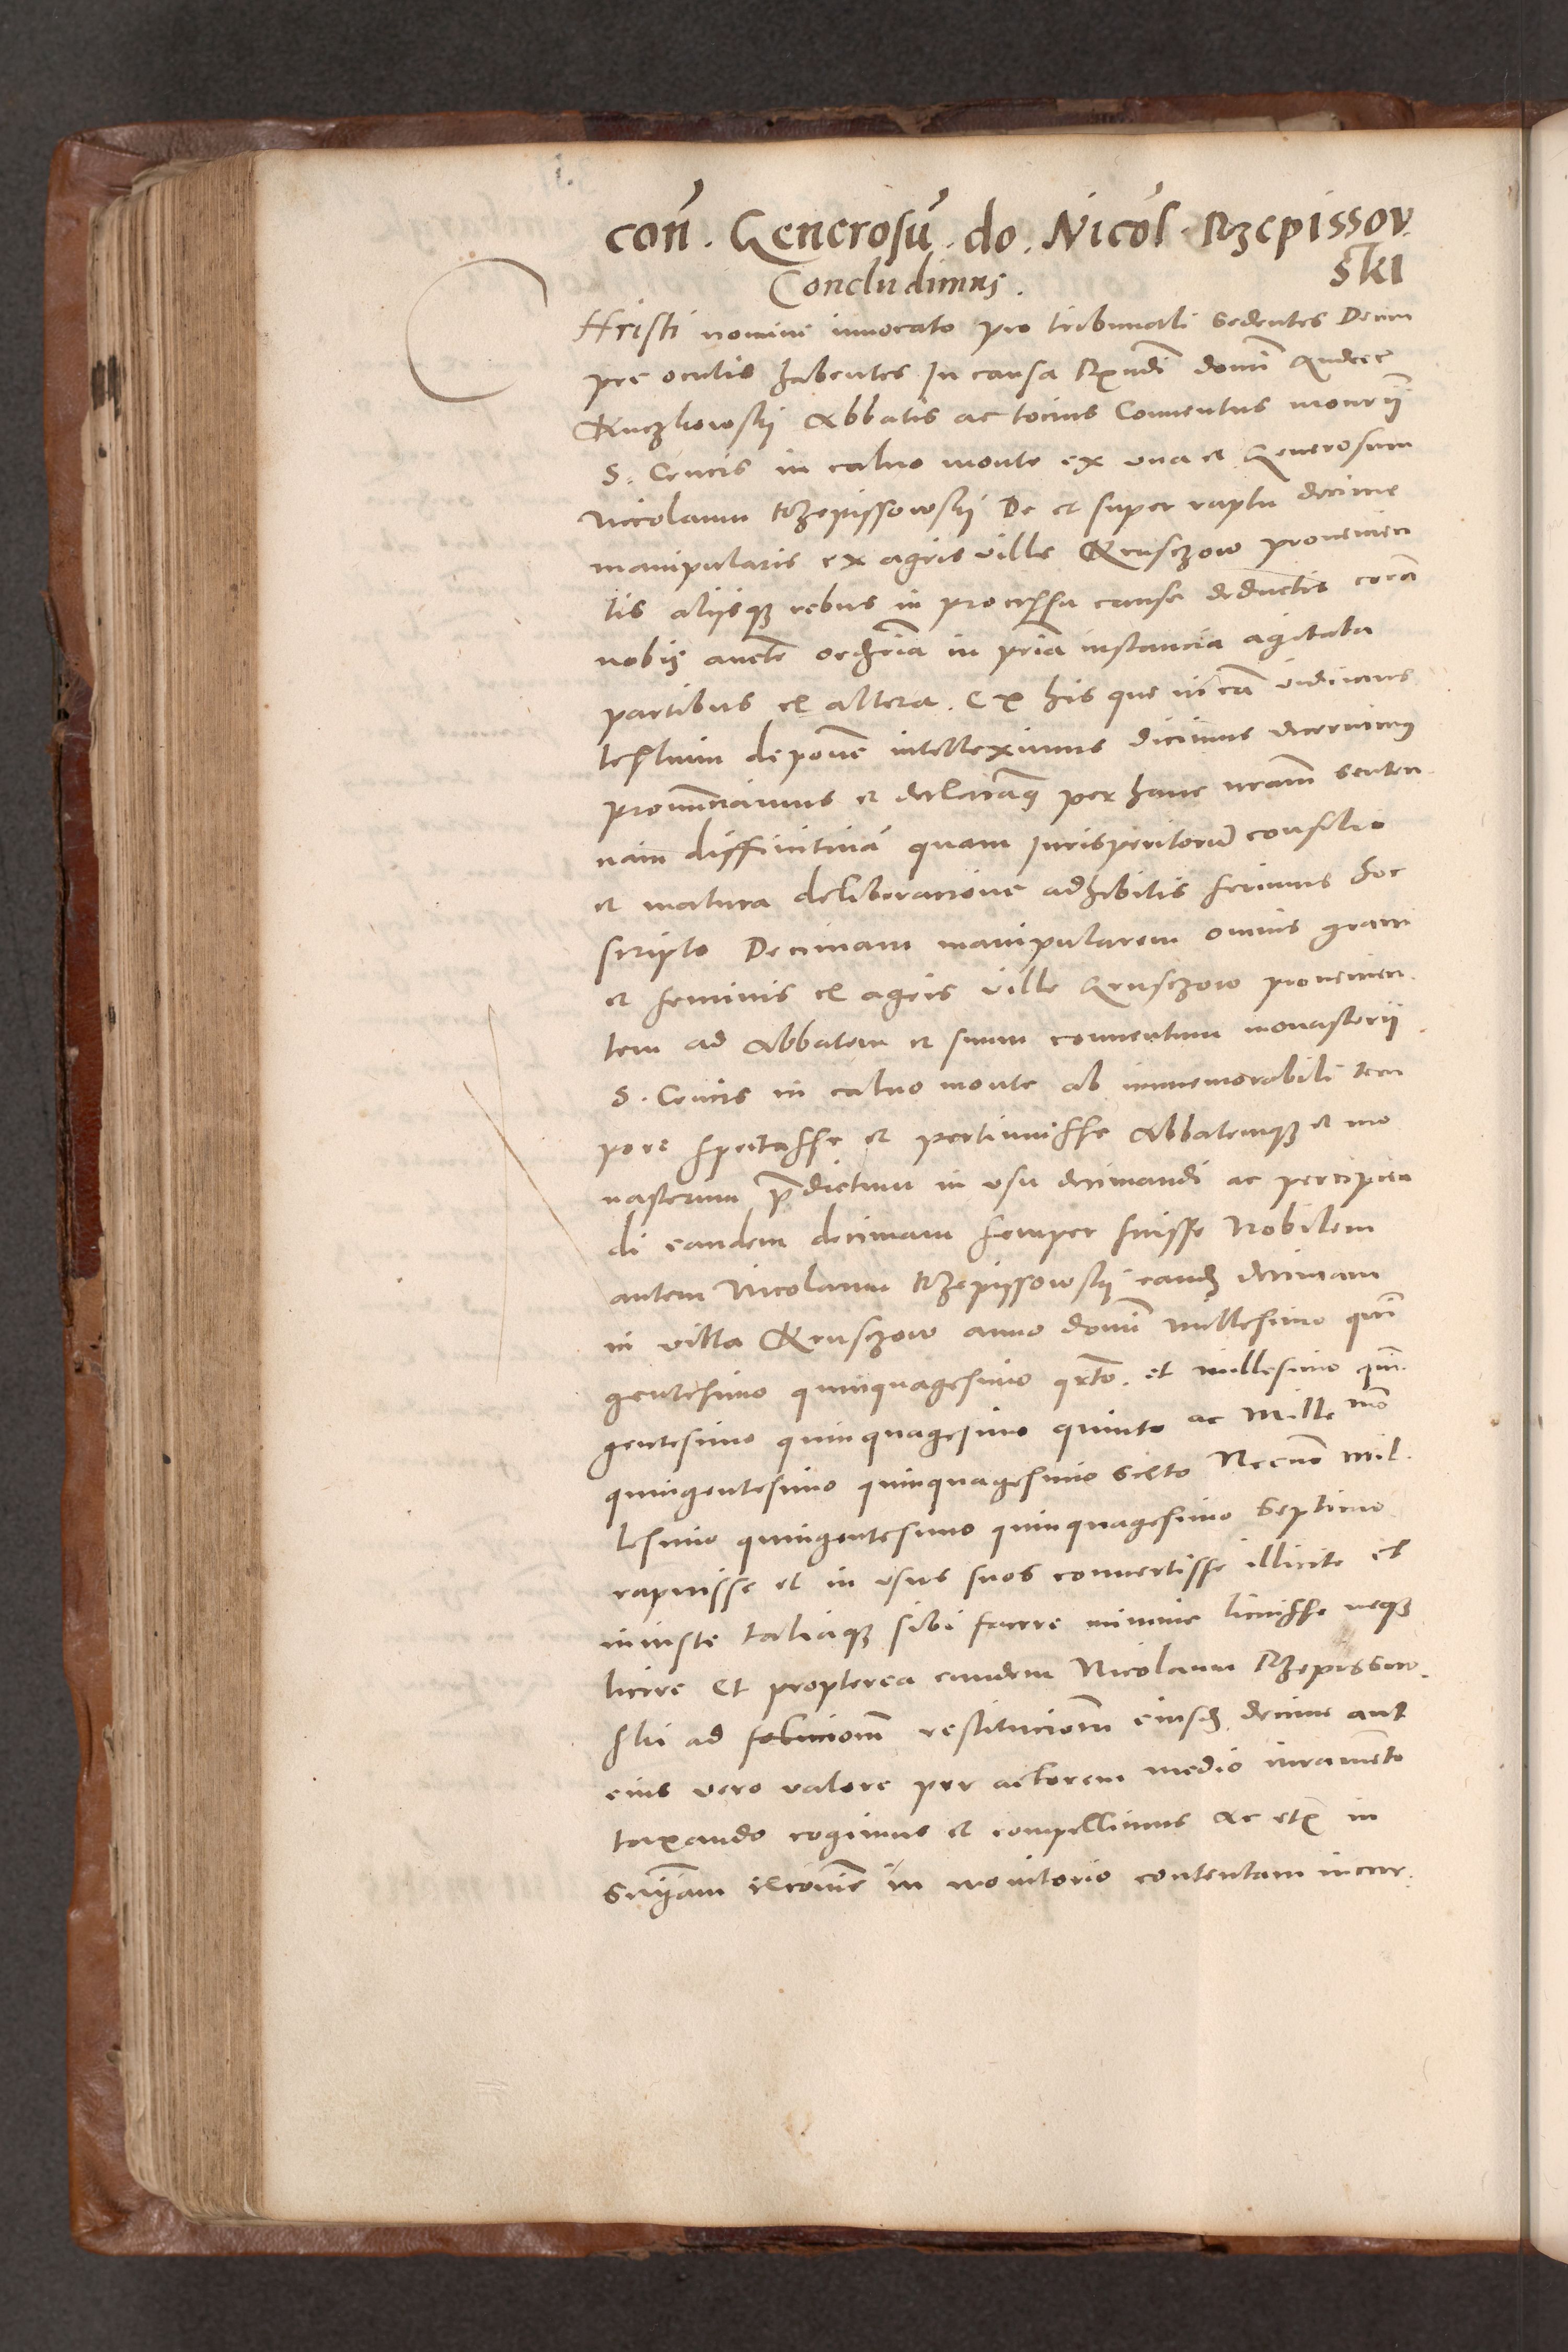 con̄. Generosū. do. Nicol. Rzepissov.
ski
Concludimus.
CHristi nomine invocato pro tribunali sedentes Deum
pre oculis habentes In causa Rxndi domi Andree
Ruczkowskÿ Abbatis ac tocius Conventus monrÿ
S. Crucis in calvo monte ex una et Generosum
Nicolaum Rzepissowskÿ De et super raptu decime
manipularis ex agris ville Krusczow provenien
tis aliisqz rebus in processu cause deductis corā
nobis aucte ordria in pria instancia agitata
partibus ex altera. Ex his que in eā vidimus
testium depone intelleximus dicimus decernimus
pronunciamus et declaramus per hanc nram senten
ciam diffinitivā quam Jurisperitorū consilio
et matura deliberacione adhibitis ferimus hoc
scripto Decimam manipularem omnis grani
et seminis ex agris ville Krusczow provenien
tem ad Abbatem et suum conventum monasterÿ
S. Crucis in calvo monte ab immemorabili tem
pore spectasse et pertinuisse Abbatemqz et mo
nasterium p̄dictum in usu decimandi ac percipien
di eandem decimam semper fuisse Nobilem
autem Nicolaum Rzepissowskÿ eandz decimam
in villa Krusczow anno domi millesimo quin
gentesimo quinquagesimo qrto. et millesimo quin
gentesimo quinquagesimo quinto ac Mille mo
quingentesimo quinquagesimo sexto Necno Mil
lesimo quingentesimo quinquagesimo Septimo
rapuisse et in usus suos convertisse illicite et
iniuste taliaqz sibi facere minime licuisse neqz
licere Et propterea eundem Nicolaum Rzepissow
ski ad restitucionem eiusdz decime aut
eius vero valore per actorem medio iuramento
taxando cogimus et compellimus Ac etz in
sniam excoie in monitorio contentam incur